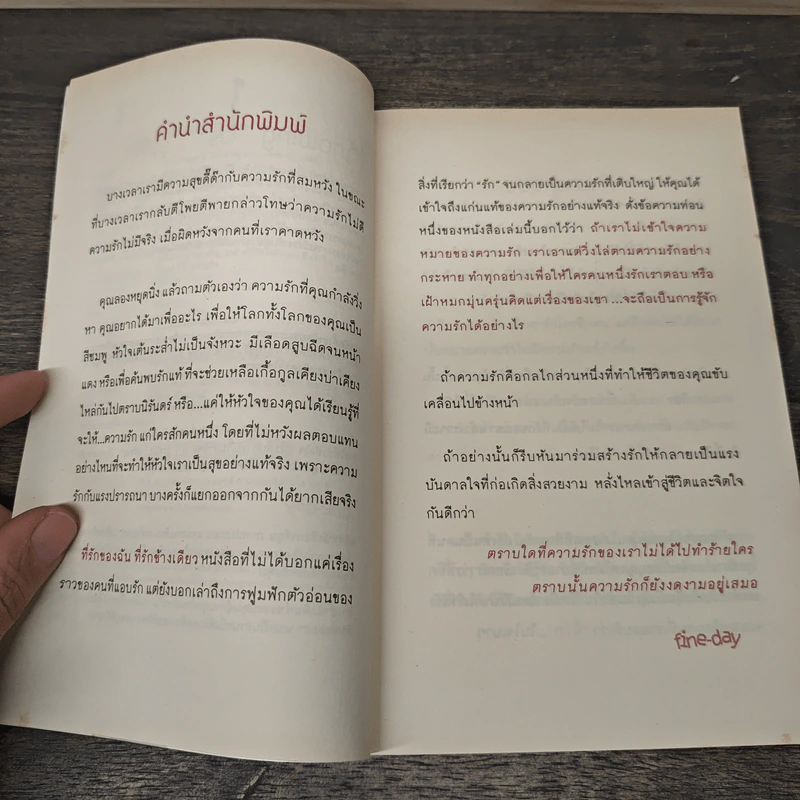 คำนำสำนักพิมพ์
บางเวลาเรามีความสุขดี๊ด๊ากับความรักที่สมหวัง ในขณะ
ที่บางเวลาเรากลับตีโพยตีพายกล่าวโทษว่าความรักไม่ดี
ความรักไม่มีจริง เมื่อผิดหวังจากคนที่เราคาดหวัง
คุณลองหยุดนิ่ง แล้วถามตัวเองว่า ความรักที่คุณกำลังวิ่ง
หา คุณอยากได้มาเพื่ออะไร เพื่อให้โลกทั้งโลกของคุณเป็น
สีชมพู หัวใจเต้นระส่ำไม่เป็นจังหวะ มีเลือดสูบฉีดจนหน้า
แดง หรือเพื่อค้นพบรักแท้ ที่จะช่วยเหลือเกื้อกูลเคียงบ่าเคียง
ไหล่กันไปตราบนิรันดร์ หรือ...แค่ให้หัวใจของคุณได้เรียนรู้ที่
จะให้...ความรัก แก่ใครสักคนหนึ่ง โดยที่ไม่หวังผลตอบแทน
อย่างไหนที่จะทำให้หัวใจเราเป็นสุขอย่างแท้จริง เพราะความ
รักกับแรงปรารถนา บางครั้งก็แยกออกจากกันได้ยากเสียจริง
ที่รักของฉัน ที่รักข้างเดียว หนังสือที่ไม่ได้บอกแค่เรื่อง
ราวของคนที่แอบรัก แต่ยังบอกเล่าถึงการฟูมฟักตัวอ่อนของ
สิ่งที่เรียกว่า “รัก” จนกลายเป็นความรักที่เติบใหญ่ ให้คุณได้
เข้าใจถึงแก่นแท้ของความรักอย่างแท้จริง ดั่งข้อความท่อน
หนึ่งของหนังสือเล่มนี้บอกไว้ว่า ถ้าเราไม่เข้าใจความ
หมายของความรัก เราเอาแต่วิ่งไล่ตามความรักอย่าง
กระหาย ทำทุกอย่างเพื่อให้ใครคนหนึ่งรักเราตอบ หรือ
เฝ้าหมกมุ่นครุ่นคิดแต่เรื่องของเขา ...จะถือเป็นการรู้จัก
ความรักได้อย่างไร
ถ้าความรักคือกลไกส่วนหนึ่งที่ทำให้ชีวิตของคุณขับ
เคลื่อนไปข้างหน้า
ถ้าอย่างนั้นก็รีบหันมาร่วมสร้างรักให้กลายเป็นแรง
บันดาลใจที่ก่อเกิดสิ่งสวยงาม หลั่งไหลเข้าสู่ชีวิตและจิตใจ
กันดีกว่า
ตราบใดที่ความรักของเราไม่ได้ไปทำร้ายใคร
ตราบนั้นความรักก็ยังงดงามอยู่เสมอ
fine-day